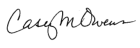 Casey M Owens